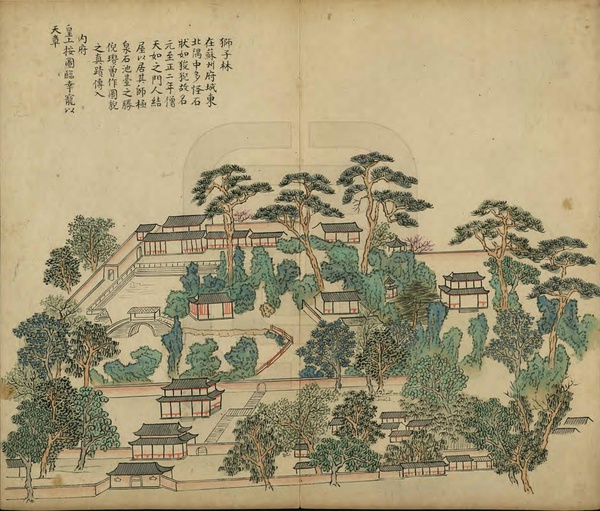 獅子林
在蘇州府城東
北隅中多怪石
狀如狻猊故名
元至正二年僧
天如之門人結
屋以居其師極
泉石池臺之勝
倪瓚曾作圖貌
之真蹟傳入
內府
皇上按圖臨幸寵以
天章